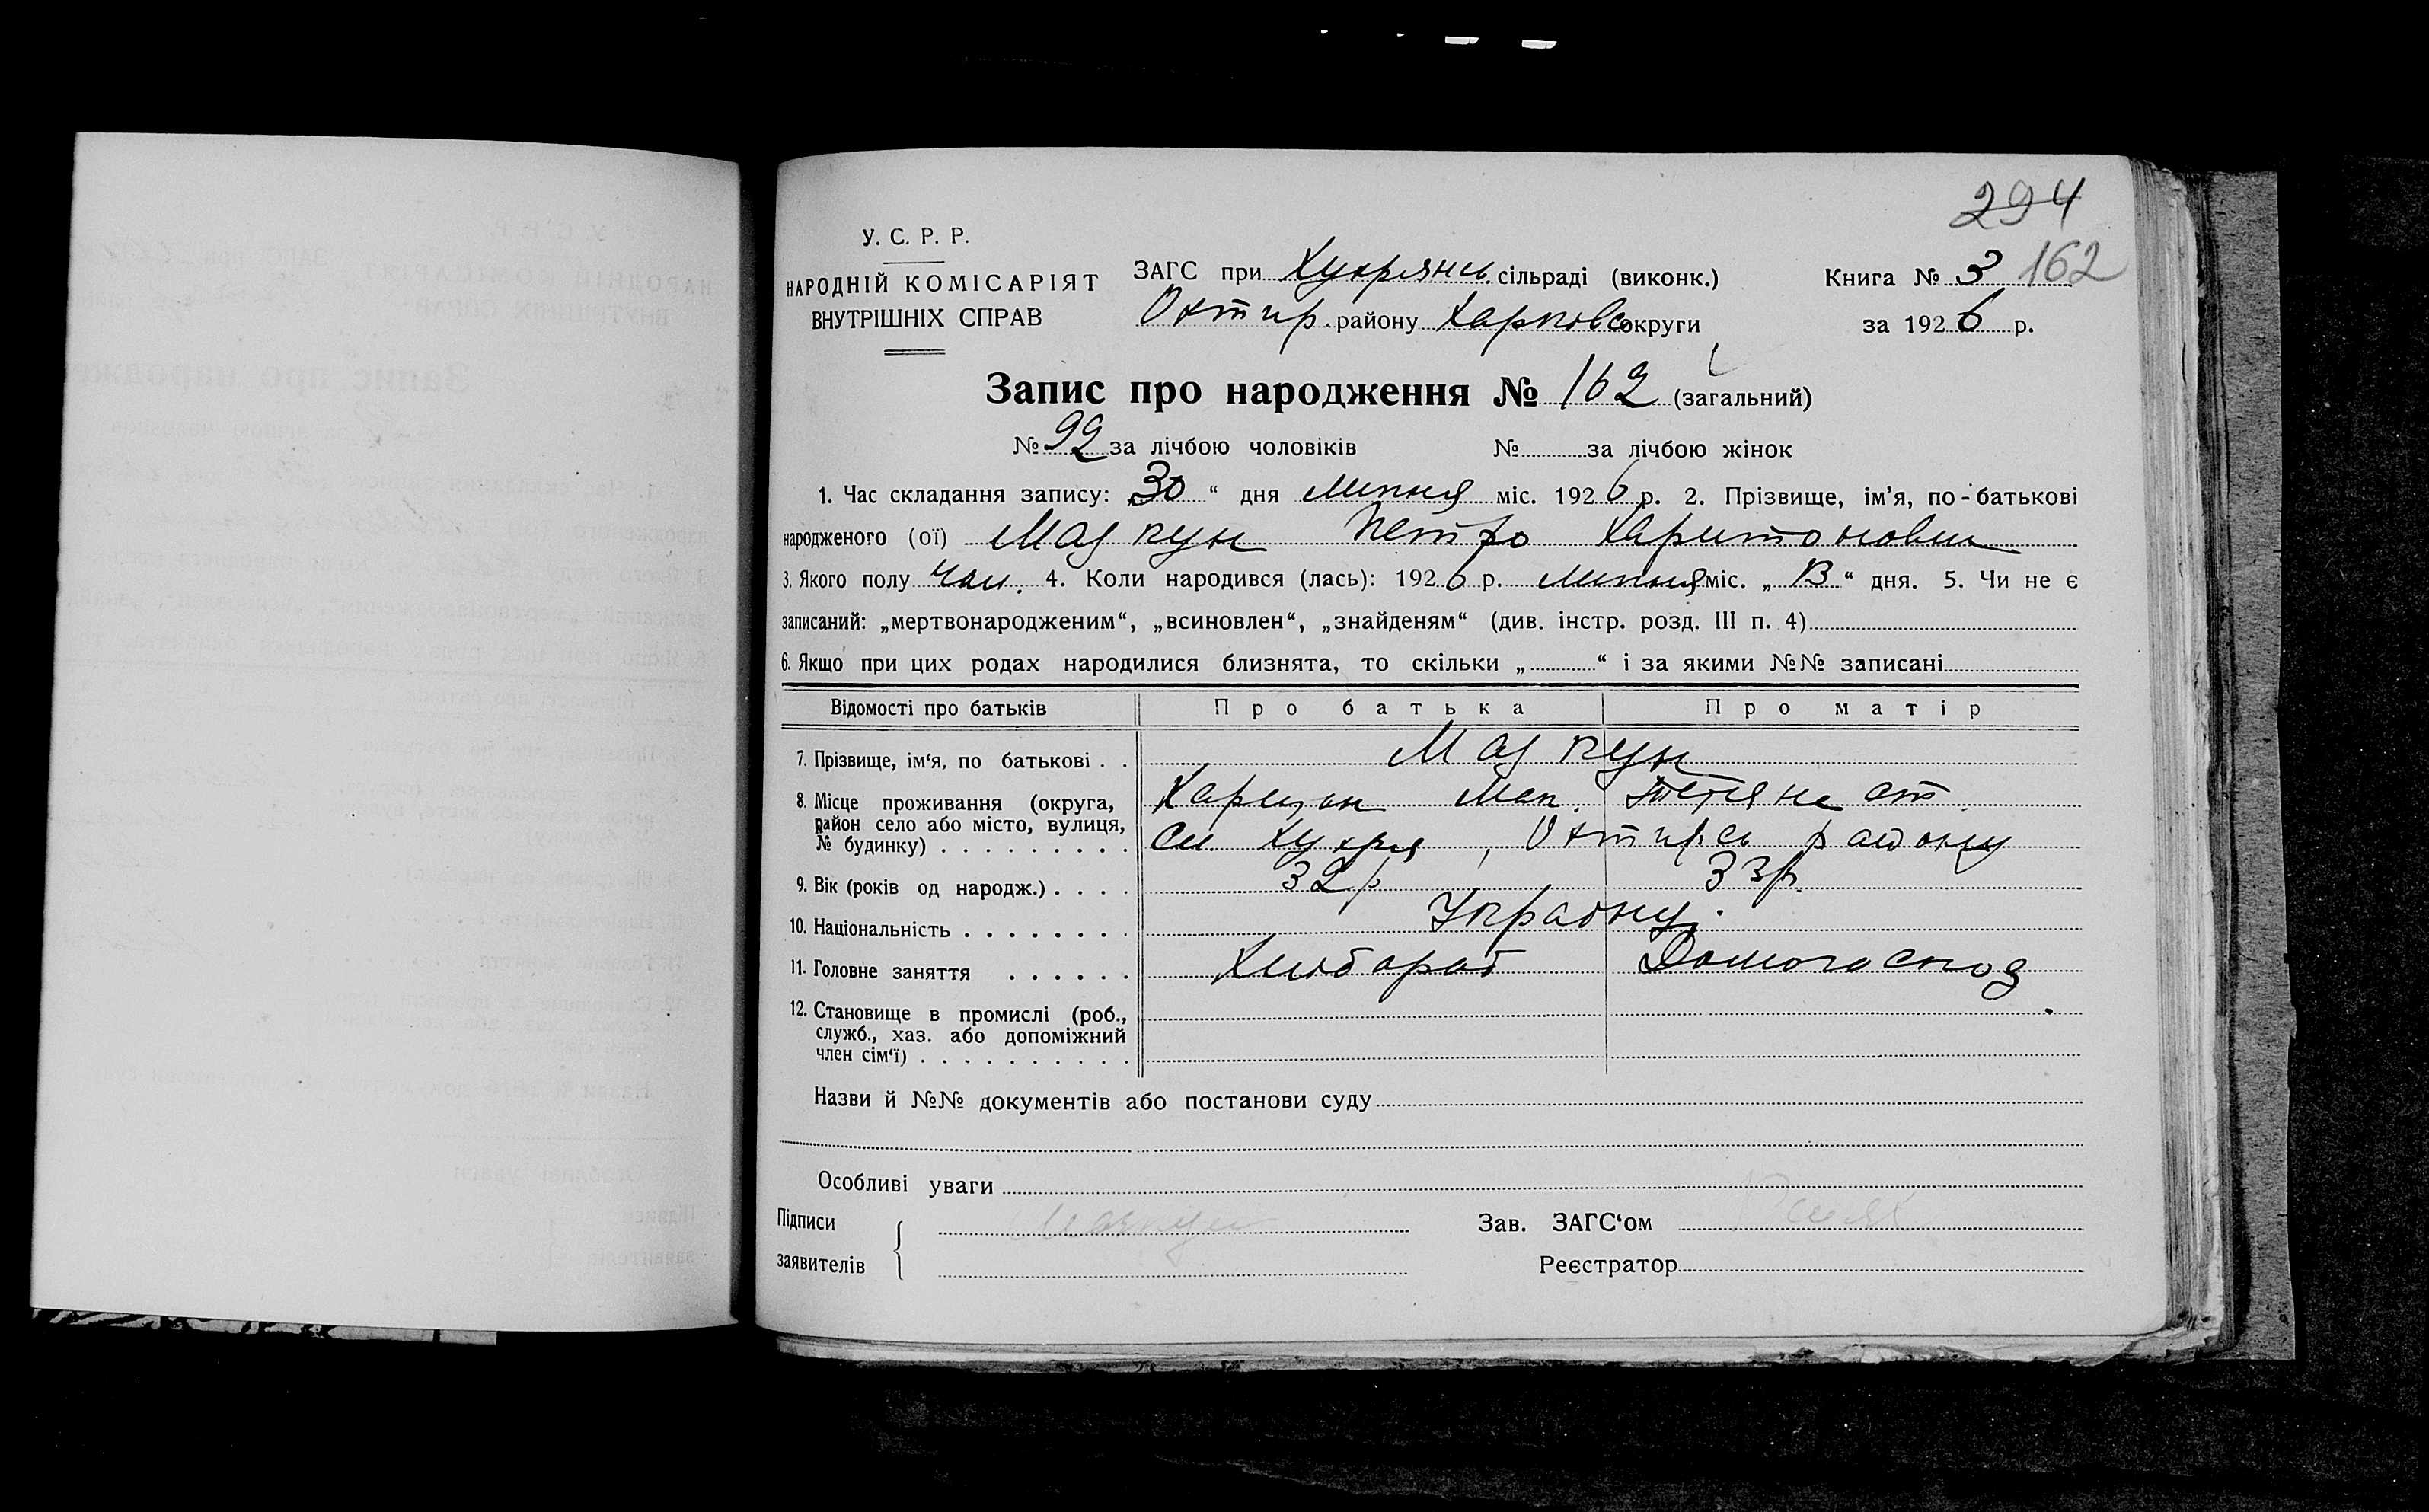 294
У. С. Р. Р.
НАРОДНІЙ КОМІСАРІЯТ
ВНУТРІШНІХ СПРАВ
ЗАГС при Хухрянсь. сільраді (виконк.)
Охтир. району Харковс округи
Книга № 3 162
за 1926 р.
Запис про народження № 162 (загальний)
№ 92 за лічбою чоловіків № за лічбою жінок
1. Час складання запису: „30“ дня липня міс. 1926 р. 2. Прізвище, ім'я, по-батькові
народженого (ої) Маякун Петро Харитонович
3. Якого полу чол. 4. Коли народився (лась): 1926 р. липня міс. „13“ дня. 5. Чи не є
записаний: „мертвонародженим“, „всиновлен“, „знайденям“ (див. інстр. розд. III п. 4)
6. Якщо при цих родах народилися близнята, то скільки „ “ і за якими №№ записані
Відомості про батьків Про батька Про матір
7. Прізвище, ім‘я, по батькові . . Маякун
8. Місце проживання (округа, район село або місто, вулиця, № будинку) . . . . . . . . .
Харитон Тетяна
сл. Хухря, Охтирсь району
9. Вік (років од народж.) . . . . 32 р 33 р.
10. Національність . . . . . . . . Україну.
11. Головне заняття . . . . . . Хлібороб Домогоспод.
12. Становище в промислі (роб., служб., хаз. або допоміжний член сім‘ї) . . . . . . . . . .
Назви й №№ документів або постанови суду
Особливі уваги
Підписи
заявителів
Маякун
Зав. ЗАГС‘ом
Реєстратор